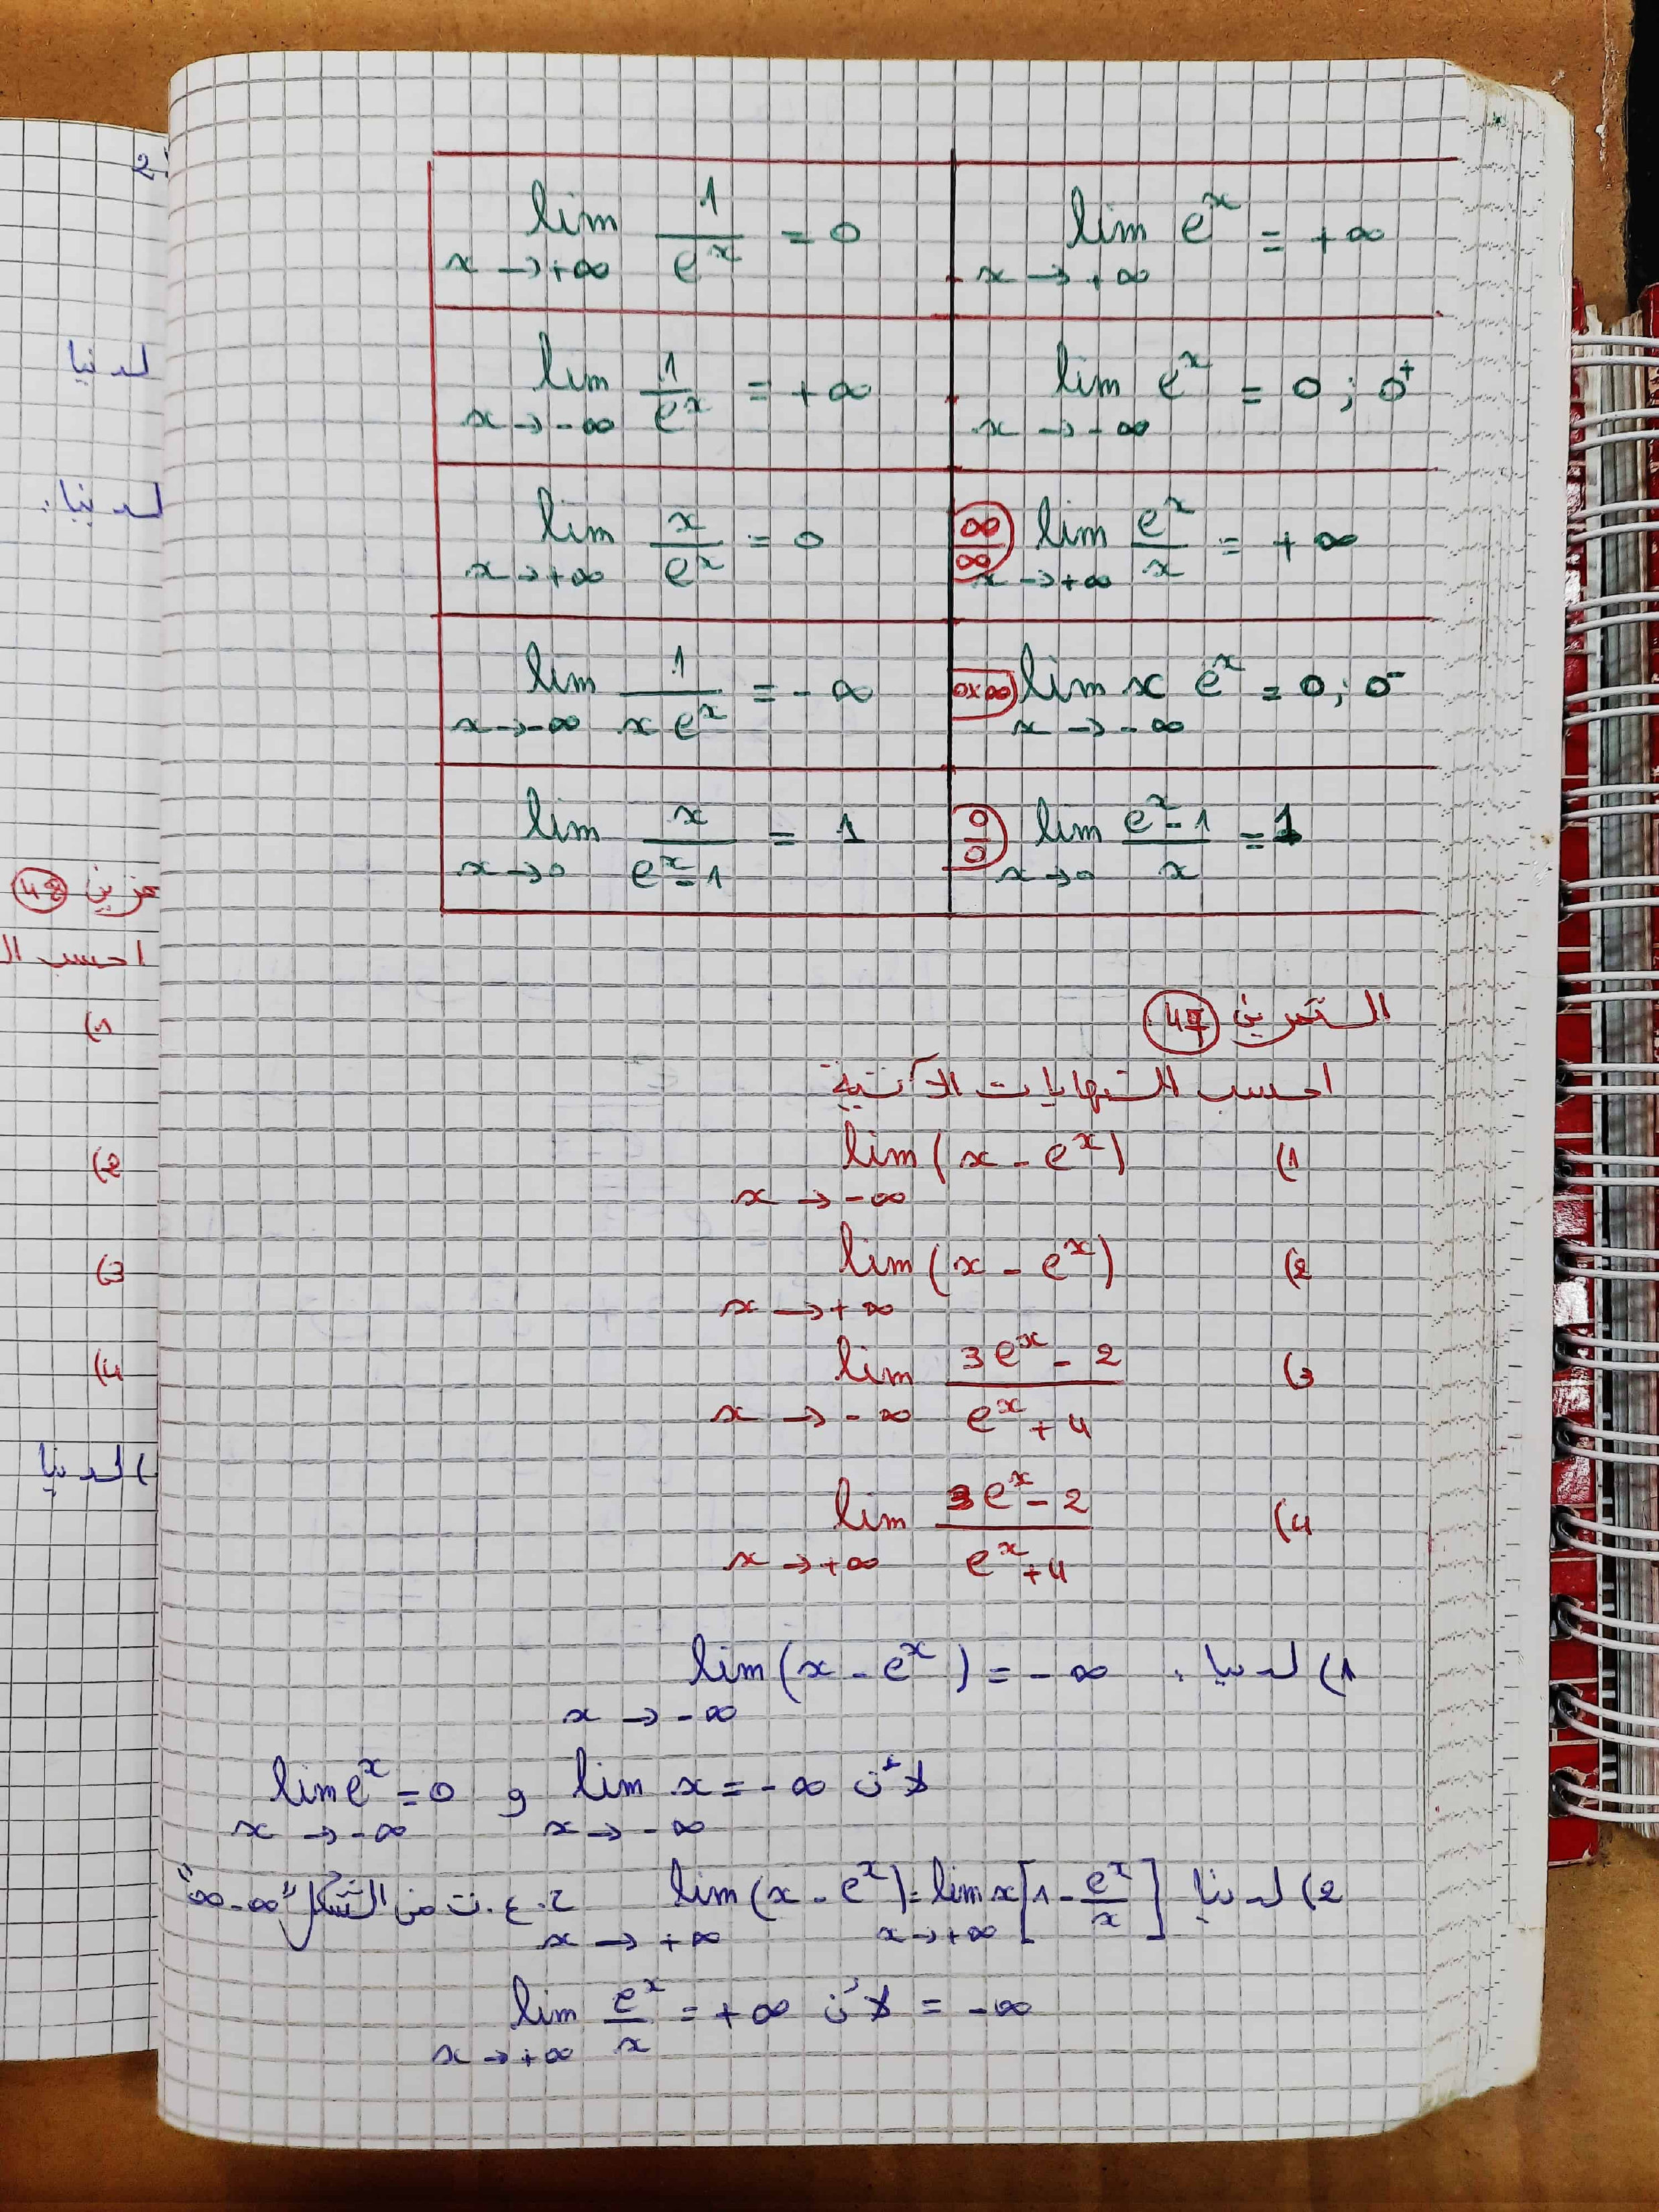 lim_{x→+∞} e^x = +∞
lim_{x→+∞} 1/e^x = 0
lim_{x→-∞} e^x = 0 ; 0^+
lim_{x→-∞} 1/e^x = +∞
∞/∞ lim_{x→+∞} e^x/x = +∞
lim_{x→+∞} x/e^x = 0
0×∞ lim_{x→-∞} x e^x = 0 ; 0^-
lim_{x→-∞} 1/(x e^x) = -∞
0/0 lim_{x→0} (e^x - 1)/x = 1
lim_{x→0} x/(e^x - 1) = 1
التمرين 47
احسب النهايات الآتية
1) lim_{x→-∞} (x - e^x)
2) lim_{x→+∞} (x - e^x)
3) lim_{x→-∞} (3e^x - 2)/(e^x + 4)
4) lim_{x→+∞} (3e^x - 2)/(e^x + 4)
1) لدينا : lim_{x→-∞} (x - e^x) = -∞
لأن lim_{x→-∞} x = -∞ و lim_{x→-∞} e^x = 0
2) لدينا lim_{x→+∞} (x - e^x) = lim_{x→+∞} x[1 - e^x/x] ح.ع.ت من الشكل "∞-∞"
= -∞ لأن lim_{x→+∞} e^x/x = +∞
لدينا
لدينا :
احسب ال
1)
2)
3)
4)
) لدينا